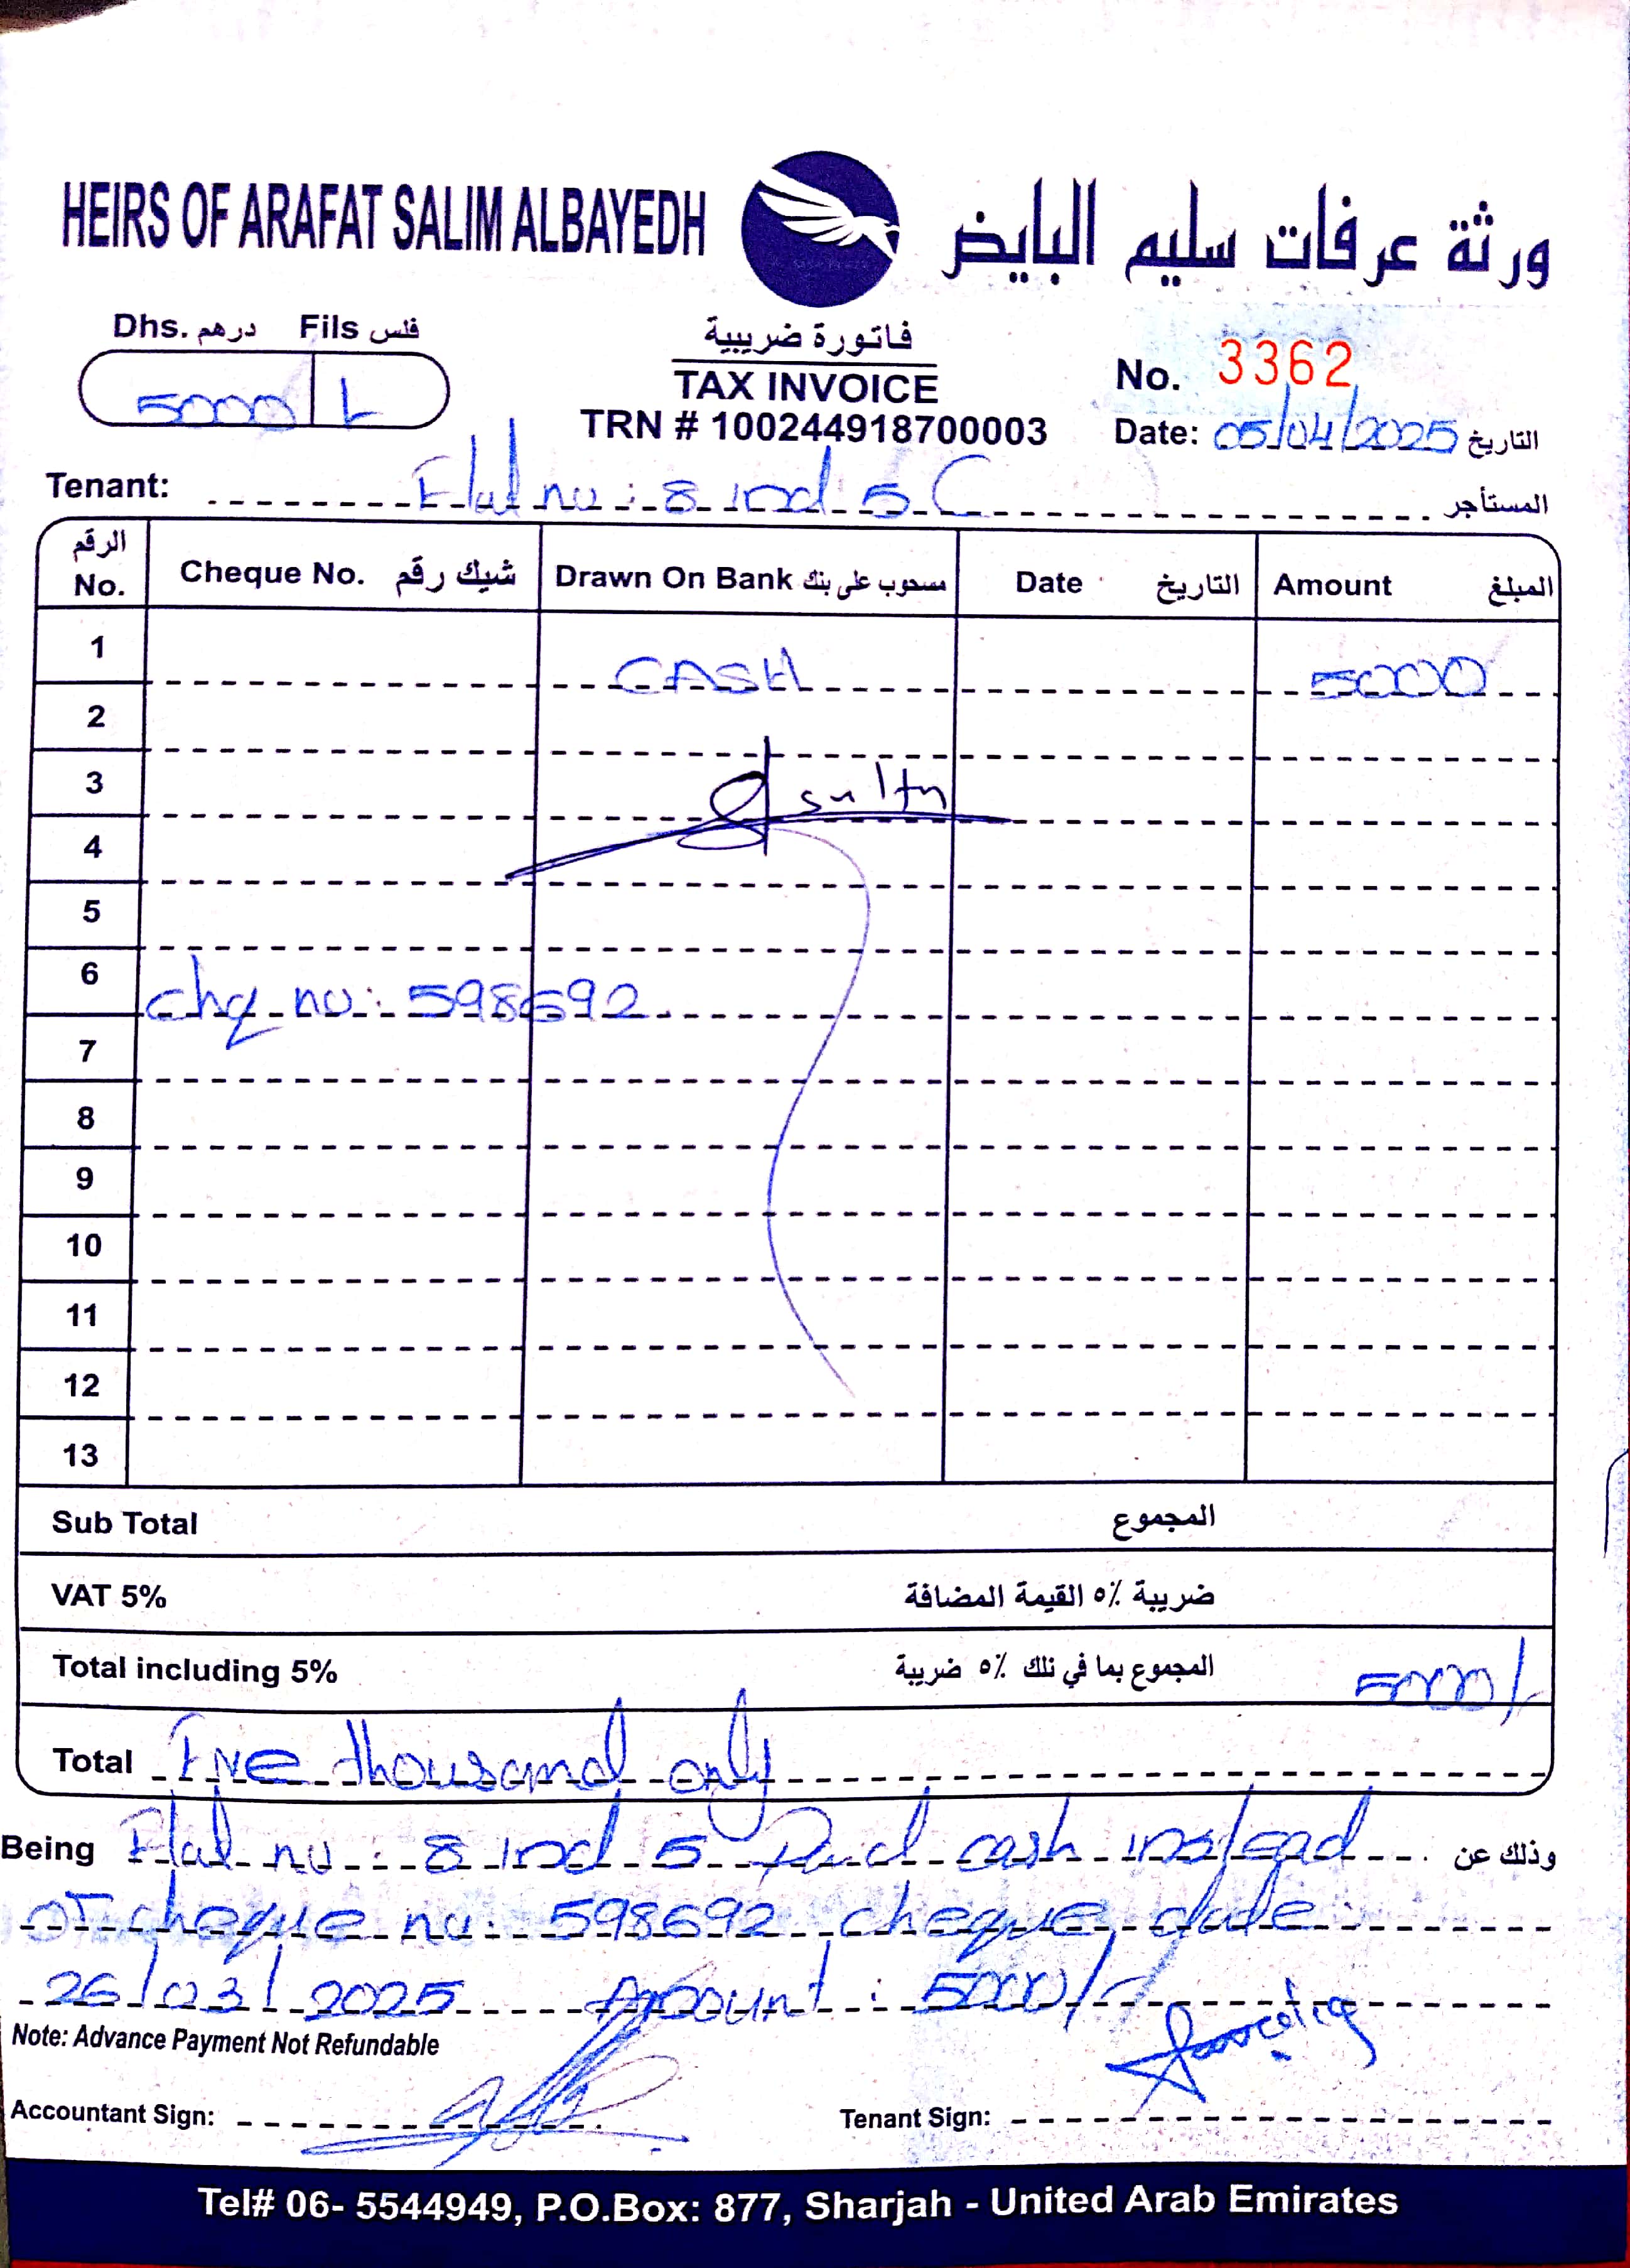 HEIRS OF ARAFAT SALIM ALBAYEDH
ورثة عرفات سليم البايض
Dhs. درهم Fils فلس
5000
فاتورة ضريبية
TAX INVOICE
TRN # 100244918700003
No. 3362
Date: 05/04/2025 التاريخ
Tenant: Flat no: 8 ind 5 C المستأجر
الرقم No. Cheque No. شيك رقم Drawn On Bank مسحوب على بنك Date التاريخ Amount المبلغ
1 CASH 5000
2
3
4
5
6 chq no: 598692
7
8
9
10
11
12
13
Sub Total المجموع
VAT 5% ضريبة ٥٪ القيمة المضافة
Total including 5% المجموع بما في ذلك ٥٪ ضريبة 5000/-
Total Five thousand only
Being Flat no: 8 ind 5 Paid cash instead وذلك عن
of cheque no: 598692 cheque date:
26/03/2025 Amount: 5000/-
Note: Advance Payment Not Refundable
Accountant Sign:
Tenant Sign:
Tel# 06- 5544949, P.O.Box: 877, Sharjah - United Arab Emirates